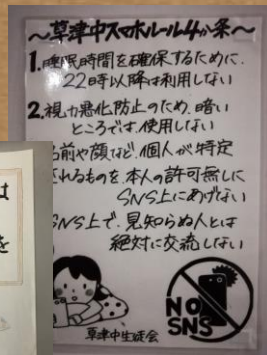 ～草津中スマホルール4か条～
1.睡眠時間を確保するために、
22時以降は利用しない
2.視力悪化防止のため、暗い
ところでは、使用しない
名前や顔など、個人が特定
されるものを、本人の許可無しに
SNS上にあげない
SNS上で、見知らぬ人とは
絶対に交流しない
NO
SNS
草津中生徒会
は
を